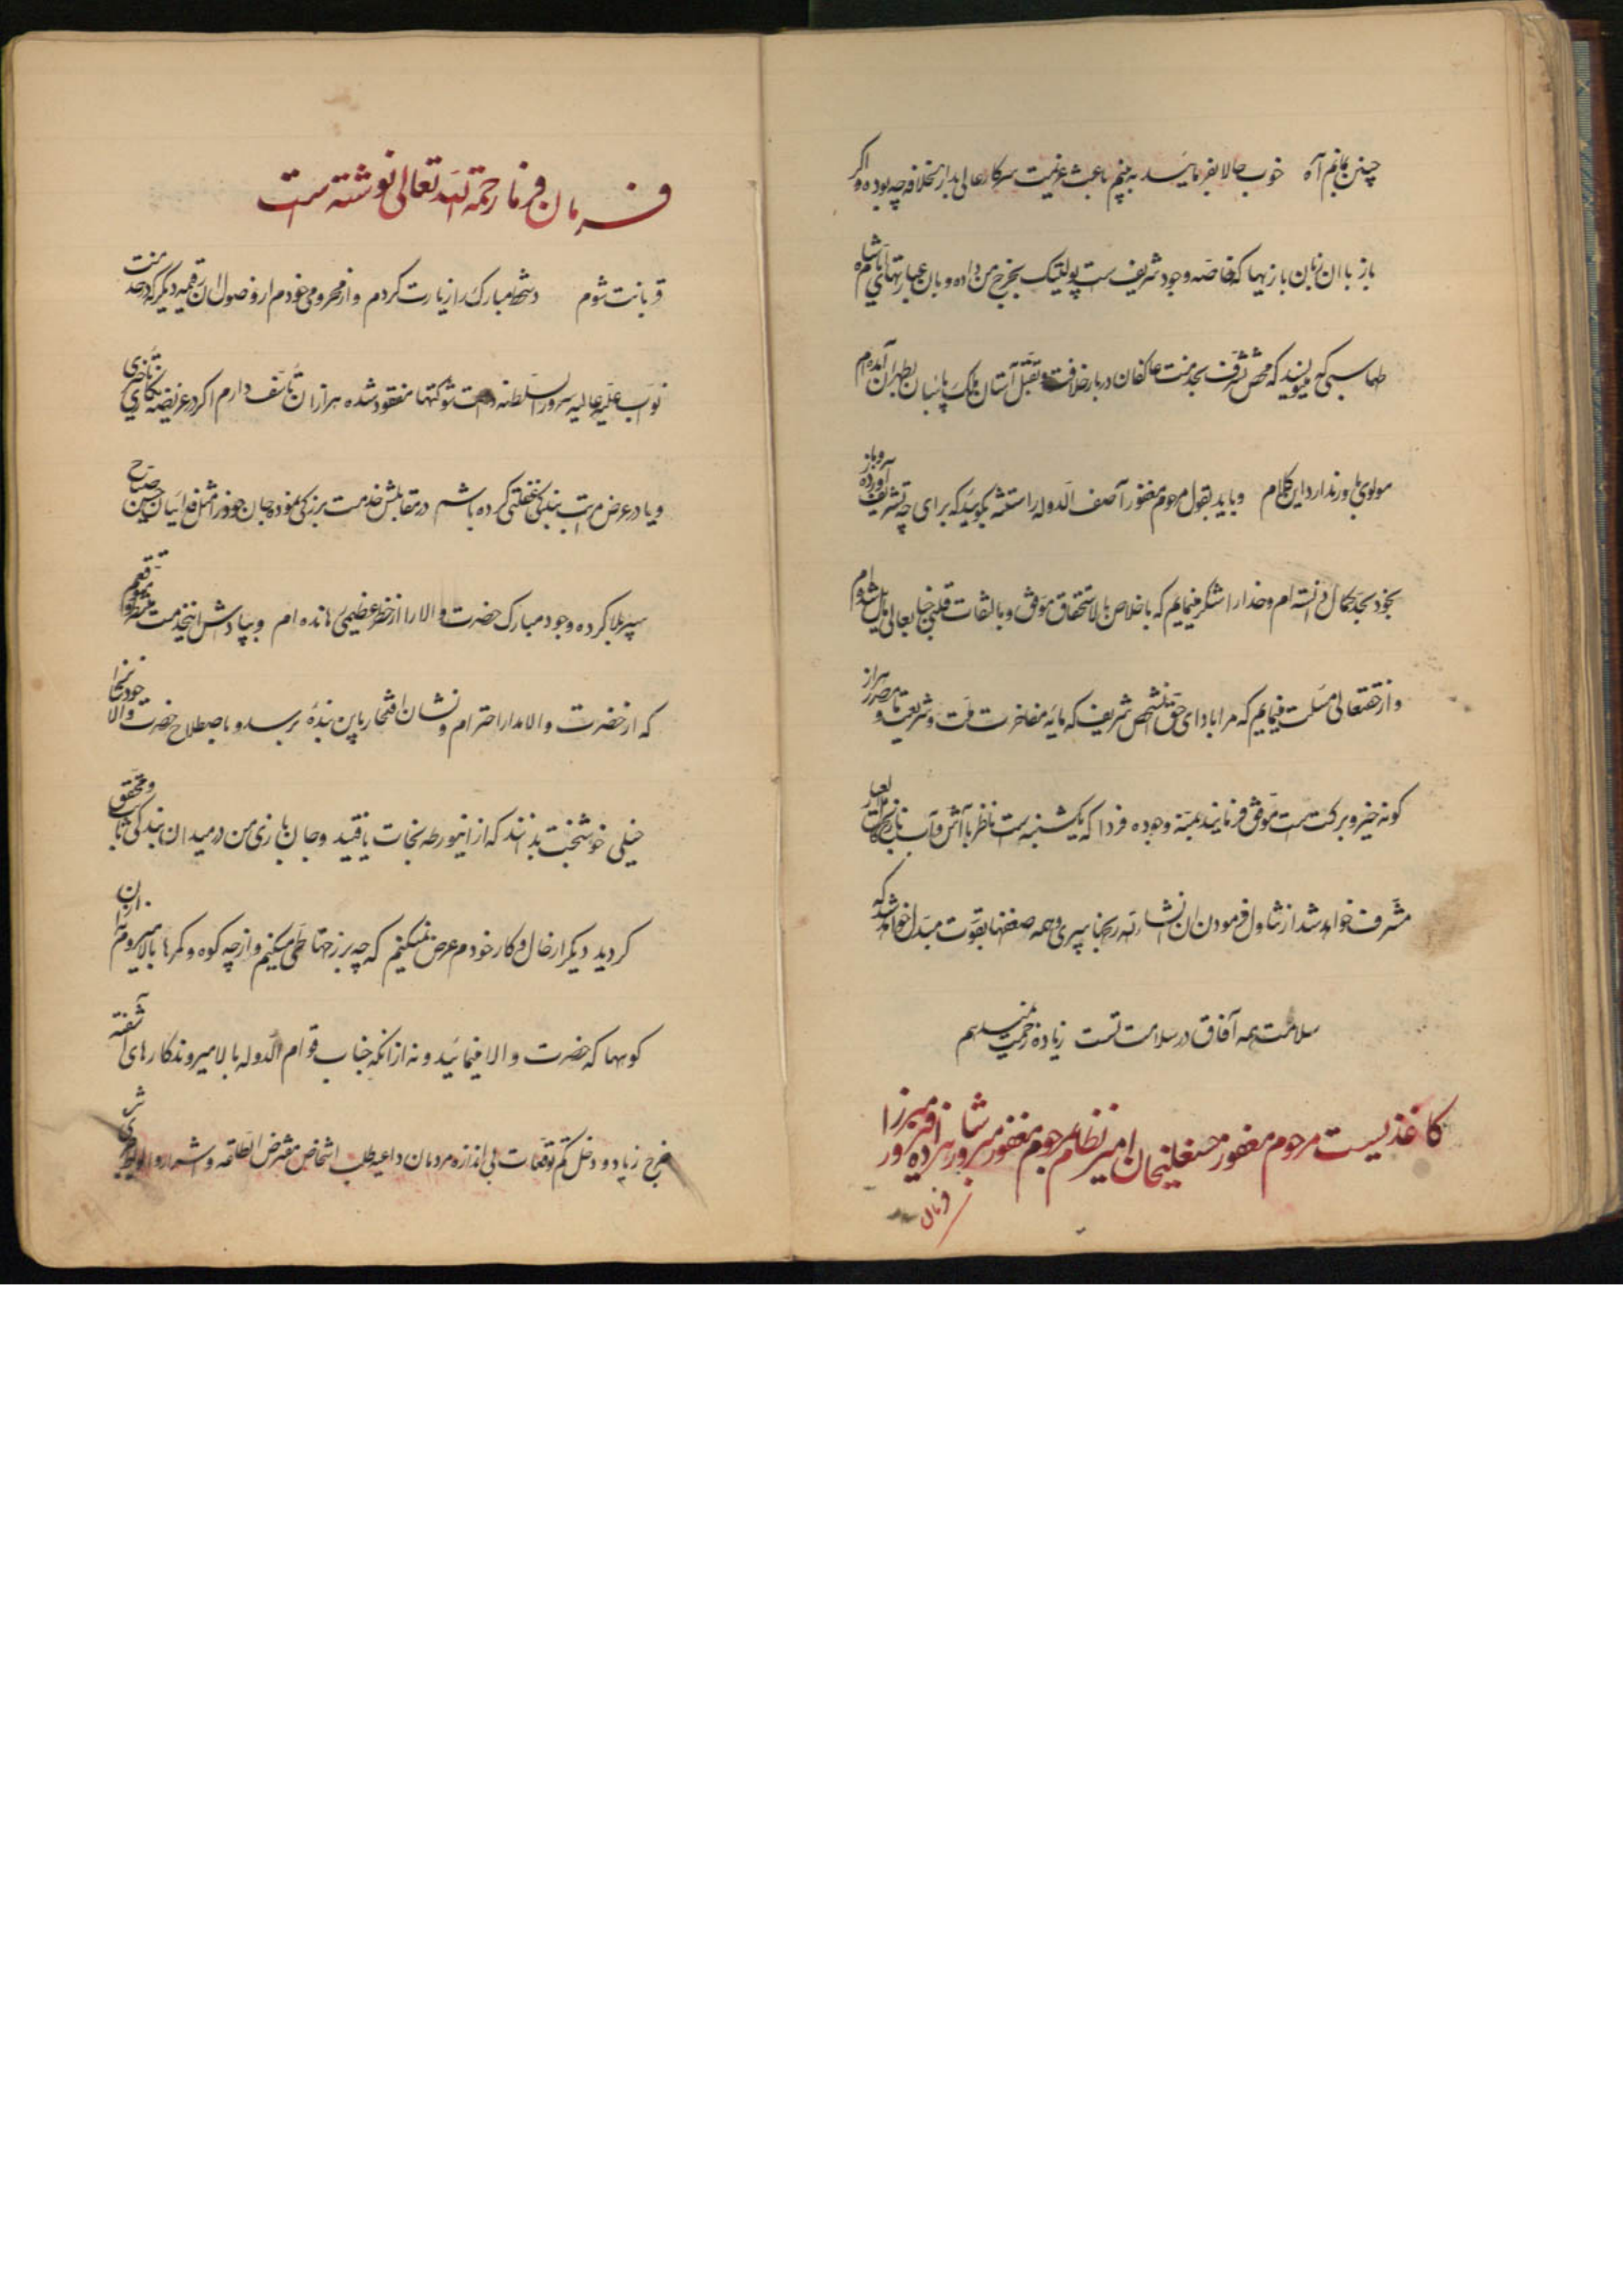 چنین بمانم آه خوب حالا بفرمائید ببینم باعث عزیمت سرکار عالی بدارالخلافه چه بوده و اگر
باز با ان زبان بازیها که خاصه وجود شریف ست پولتیک بخرج من داده و بان عبارتهای شاه
طهماسبی میگویید که محض تشرف بخدمت عاکفان دربار خلافت و تقبل آستان ملک پاسبان بطهران آمده‌ام
مولوی باور ندارد این کلام و باید بقول مرحوم مغفور آصف الدوله راستشه بگوئید که برای چه تشریف آورده
بخود بجد کمال دانسته ام و خدا را شکر مینمایم که باخلاص بالاستحقاق موفق و بالتفات قلبی جنابعالی نایل شده ام
و از حقتعالی مسئلت مینمایم که مرا بادای حق شخص شریف که مایه مفاخرت ملت و شریعت و مصدر هزار
کونه خیر و برکت ست موفق فرمایند بمنه وجوده فردا که یکشنبه ست
مشرف خواهد شد از تناول فرمودن ان پیری و همه ضعفها بقوت مبدل خواهد شد که
سلامت همه آفاق در سلامت تست زیاده زحمت نمیدهم
کاغذیست مرحوم مغفور حسنعلیخان امیر نظام بمرحوم مغفور مبرور شاهزاده فیروز میرزا
فرمان
فرمانفرما رحمة الله تعالی نوشته است
قربانت شوم دستخط مبارک را زیارت کردم و از محرومی خودم از وصول ان رقیمه دیگر که در خدمت
نواب علیه عالیه سرور السلطنه دامت شوکتها مفقود شده هزاران تأسف دارم اگر در عریضه نگاری تأخیری
و یا در عرض مراتب بندگی غفلتی کرده باشم در مقابلش خدمت بزرگی نموده جان خود را مثل فدائیان حسن صباح
سپر بلا کرده وجود مبارک حضرت والا را از خطر عظیمی رهانده ام و بپاداش اینخدمت منتظر و متوقعم
که از حضرت والا مدار احترام و نشان افتخار باین بنده برسد و باصطلاح حضرت والا خودتانرا
خیلی خوشبخت بدانند که از اینورطه نجات یافتید و جان بازی من در میدان بندگی ثابت و محقق
کردید دیگر از حال و کار خودم عرض نمیکنم که چه برزخها طی میکنم و از چه کوه و کمرها بالا میروم نه از ان
کوهها که حضرت والا مینمائید و نه از انکه جناب قوام الدوله بالا میروند کارهای آشفته
خرج زیاد و دخل کم توقعات بی اندازه مردمان داعیه طلب اشخاص مفترض الطاعه و اشرار